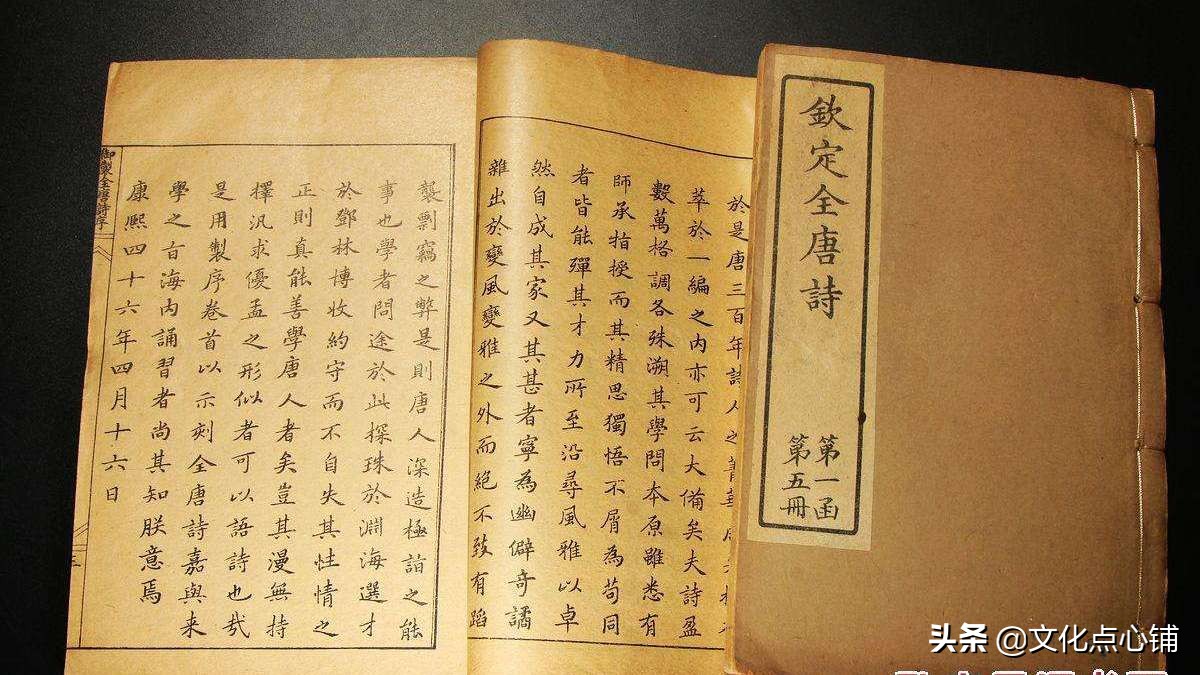 欽定全唐詩
第一函
第五冊
於是唐三百年詩人之菁華
萃於一編之內亦可云大備矣夫詩盈
數萬格調各殊溯其學問本原雖悉有
師承指授而其精思獨悟不屑為苟同
者皆能殫其才力所至沿尋風雅以卓
然自成其家又其甚者寧為幽僻奇譎
雜出於變風變雅之外而絕不致有蹈
襲剽竊之弊是則唐人深造極詣之能
事也學者問途於此探珠於淵海選才
於鄧林博收約守而不自失其性情之
正則真能善學唐人者矣豈其漫無持
擇汎求優孟之形似者可以語詩也哉
是用製序卷首以示刻全唐詩嘉與來
學之旨海內誦習者尚其知朕意焉
康熙四十六年四月十六日
御製全唐詩序
三
头条 @文化点心铺